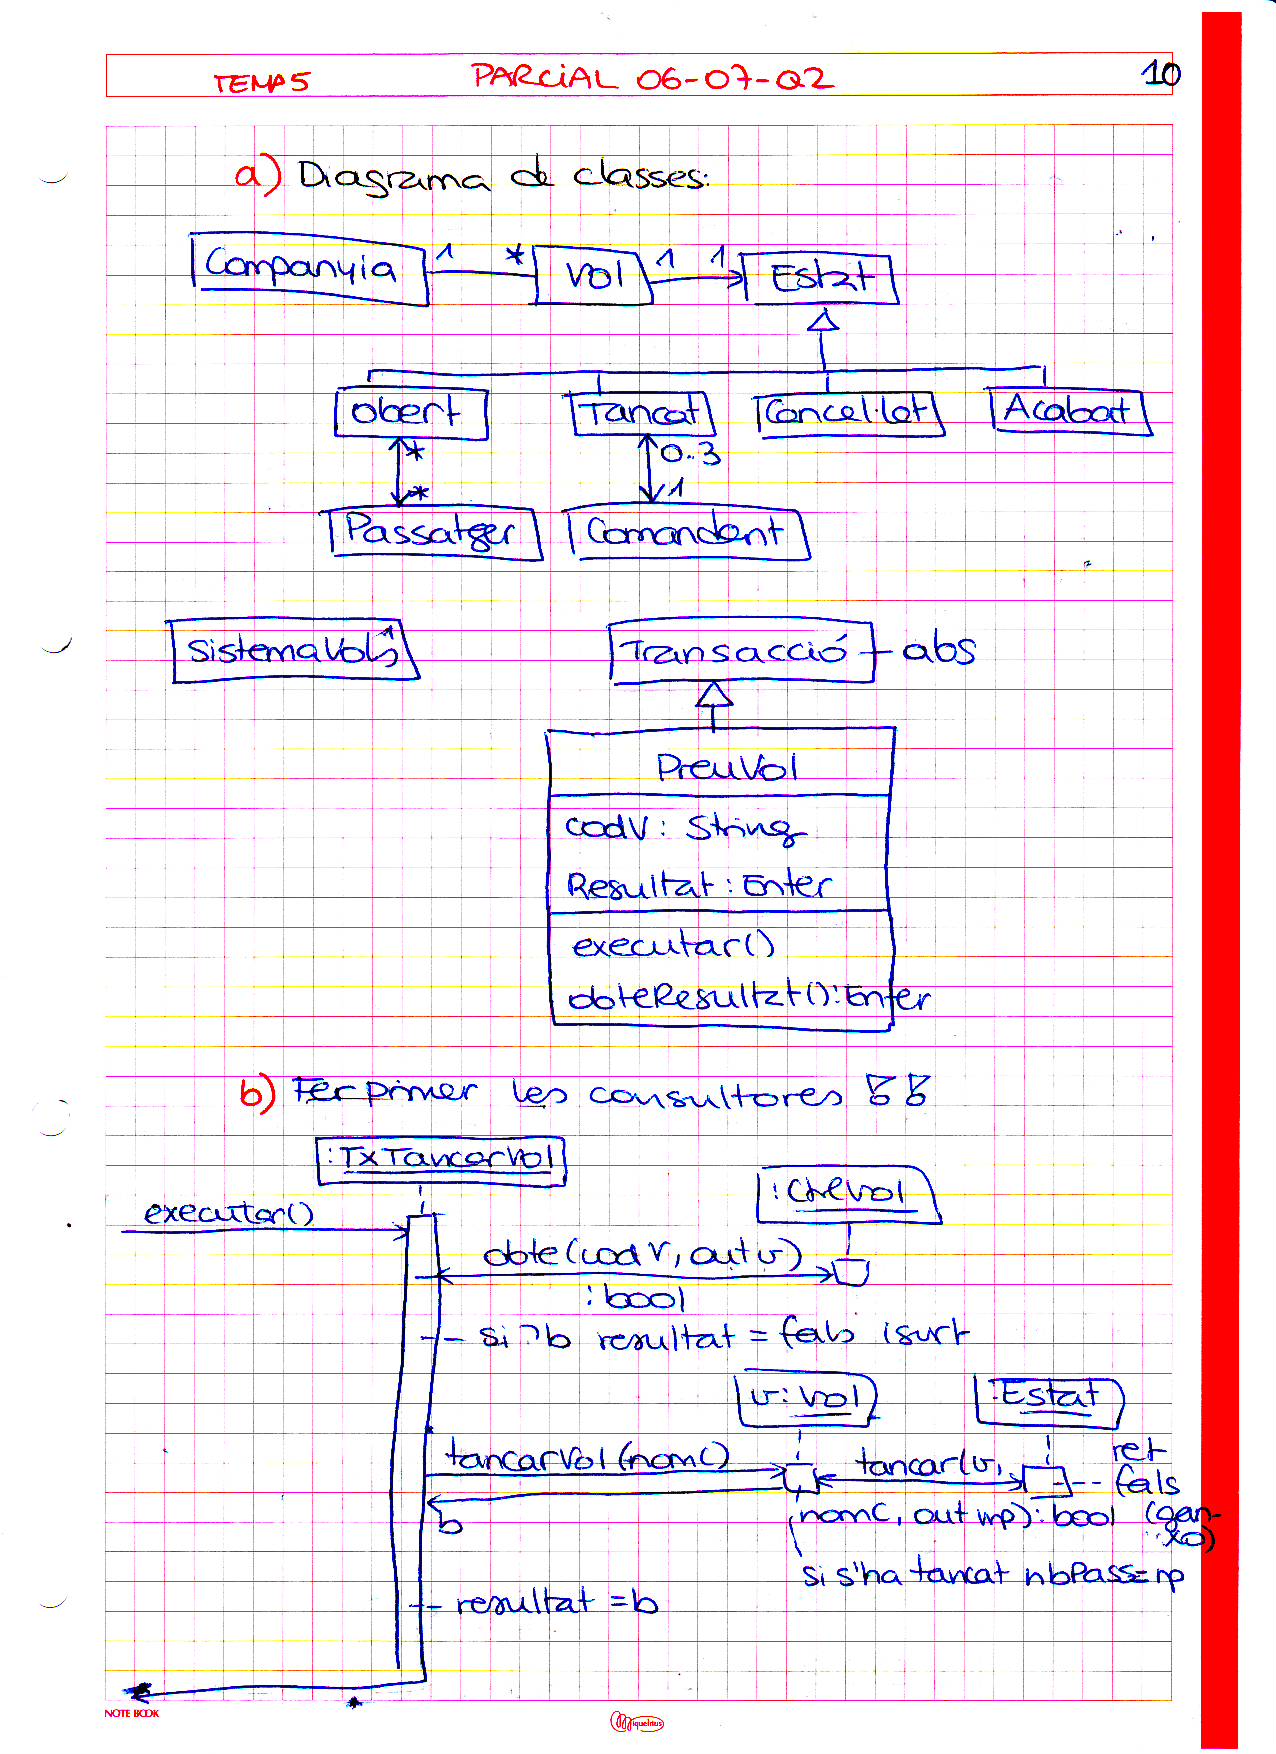 TEMA 5 PARCIAL 06-07-Q2 10
a) Diagrama de classes:
Companyia 1 * Vol 1 1 Estat
Obert Tancat Cancel·lat Acabat
* 0..3
* 1
Passatger Comandant
SistemaVols 1 Transacció abs
PreuVol
codV: String
Resultat: Enter
executar()
obteResultat(): Enter
b) Fer primer les consultores !!
:TxTancarVol
:CtrlVol
executar()
obte(codV, out v)
:bool
si ¬b resultat = fals i surt
v:Vol :Estat
tancarVol(nomC) tancar(v, ret
fals
b nomC, out np): bool (gan-
xo)
si s'ha tancat nbPass=np
resultat = b
NOTE BOOK Miquelrius